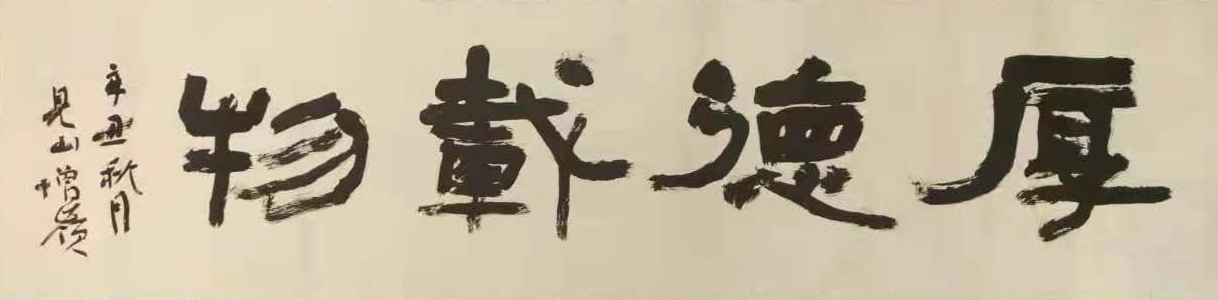 厚德載物
辛丑秋月
見山增嶺